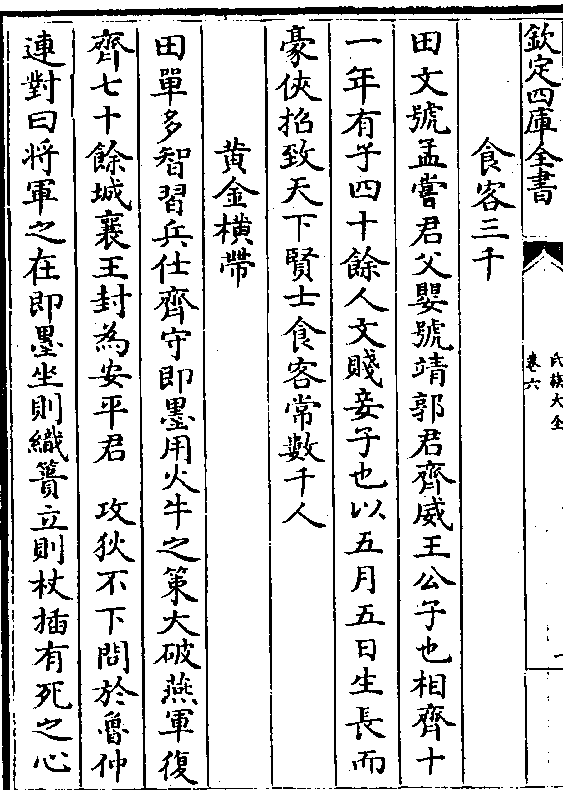 欽定四庫全書
氏族大全
卷六
食客三千
田文號孟嘗君父嬰號靖郭君齊威王公子也相齊十
一年有子四十餘人文賤妾子也以五月五日生長而
豪俠招致天下賢士食客常數千人
黄金橫帶
田單多智習兵仕齊守即墨用火牛之策大破燕軍復
齊七十餘城襄王封為安平君　攻狄不下問於魯仲
連對曰将軍之在即墨坐則織簣立則杖插有死之心